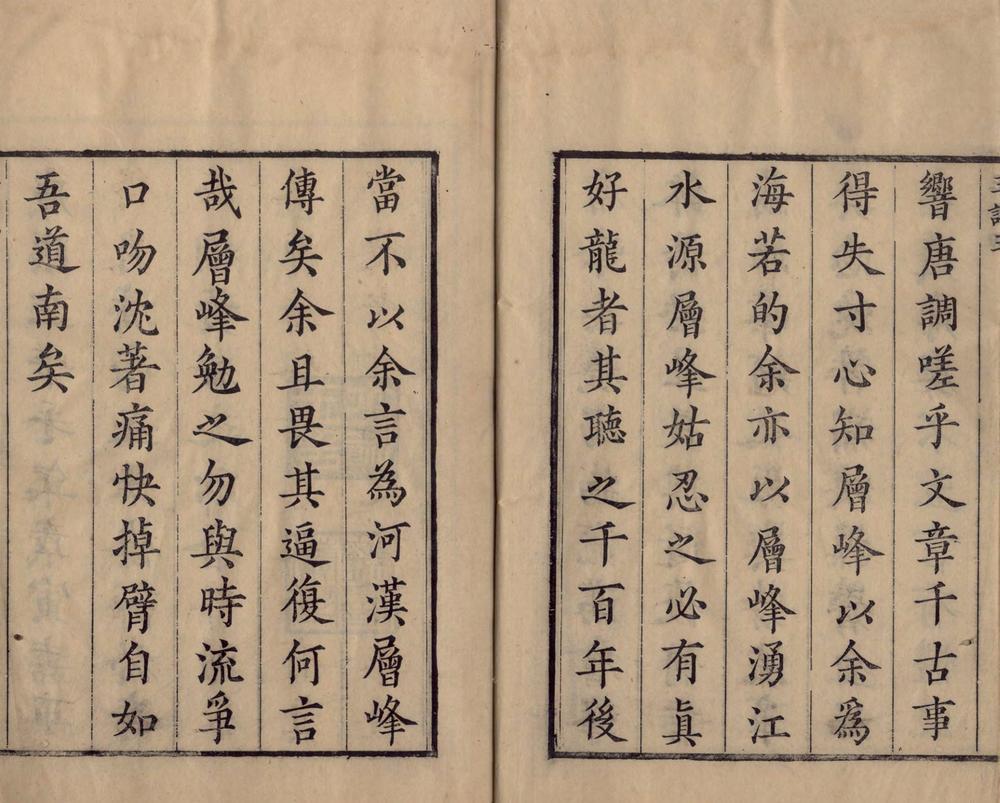 響唐調嗟乎文章千古事
得失寸心知層峰以余為
海若的余亦以層峰湧江
水源層峰姑忍之必有眞
好龍者其聽之千百年後
當不以余言為河漢層峰
傳矣余且畏其逼復何言
哉層峰勉之勿與時流爭
口吻沈著痛快掉臂自如
吾道南矣